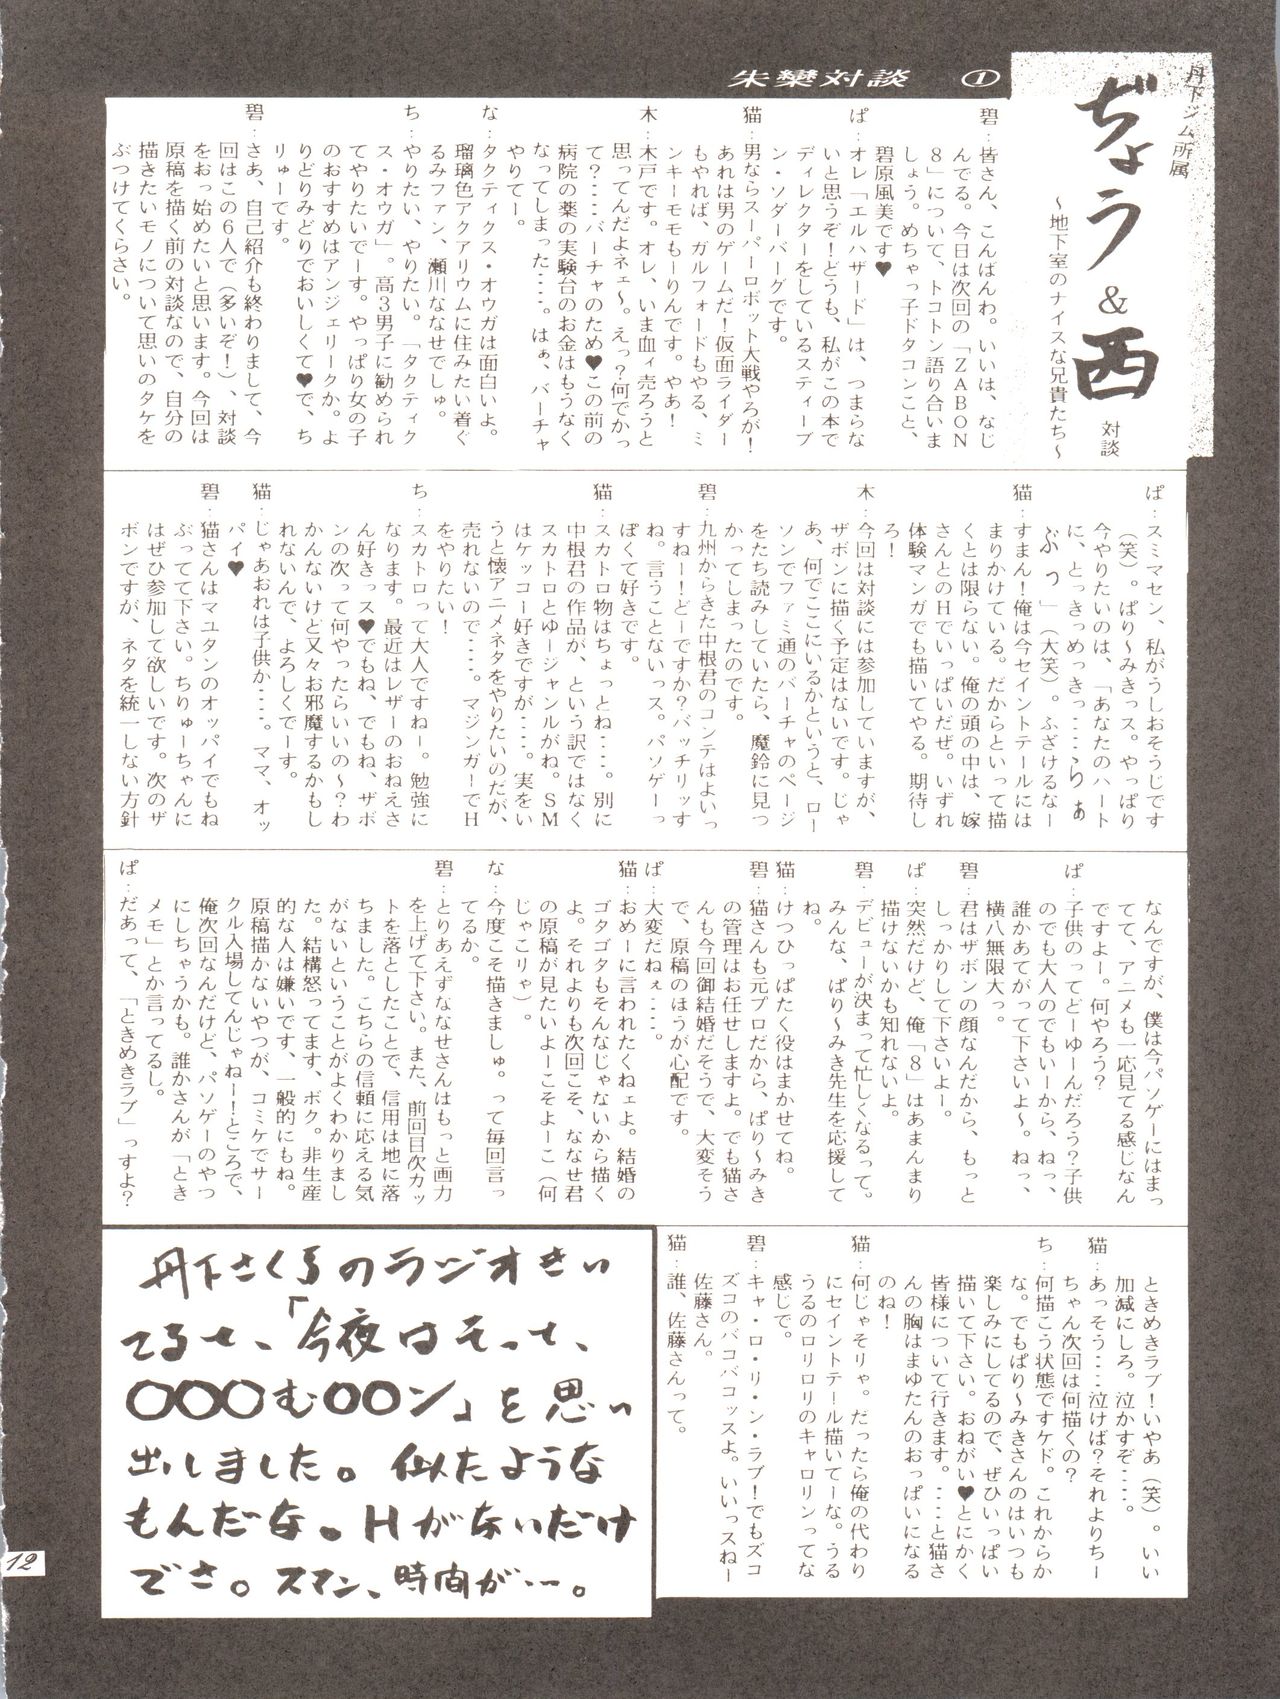 朱欒対談 ①
丹下ジム所属
ぢょう&西 対談
～地下室のナイスな兄貴たち～
碧：皆さん、こんばんわ。いいは、なじ
んでる。今日は次回の「ZABON
8」について、トコトン語り合いま
しょう。めちゃっ子ドタコンこと、
碧原風美です♥
ぱ：オレ「エルハザード」は、つまらな
いと思うぞ！どうも、私がこの本で
ディレクターをしているスティーブ
ン・ソダーバーグです。
猫：男ならスーパーロボット大戦やろが！
あれは男のゲームだ！仮面ライダー
もやれば、ガルフォードもやる、ミ
ンキーモモもーりんです。やあ！
木：木戸です。オレ、いま血ィ売ろうと
思ってんだよネェ～。えっ？何でかっ
て？‥‥バーチャのため♥この前の
病院の薬の実験台のお金はもうなく
なってしまった‥‥。はぁ、バーチャ
やりてー。
な：タクティクス・オウガは面白いよ。
瑠璃色アクアリウムに住みたい着ぐ
るみファン、瀬川ななせでしゅ。
ち：やりたい、やりたい。「タクティク
ス・オウガ」。高3男子に勧められ
てやりたいでーす。やっぱり女の子
のおすすめはアンジェリークか。よ
りどりみどりでおいしくて♥で、ち
りゅーです。
碧：さあ、自己紹介も終わりまして、今
回はこの6人で（多いぞ！）、対談
をおっ始めたいと思います。今回は
原稿を描く前の対談なので、自分の
描きたいモノについて思いのタケを
ぶつけてくらさい。
ぱ：スミマセン、私がうしおそうじです
（笑）。ぱり～みきっス。やっぱり
今やりたいのは、「あなたのハート
に、とっきっめっきっ‥‥らぁ
ぶっ」（大笑）。ふざけるなー
猫：すまん！俺は今セイントテールには
まりかけている。だからといって描
くとは限らない。俺の頭の中は、嫁
さんとのHでいっぱいだぜ。いずれ
体験マンガでも描いてやる。期待し
ろ！
木：今回は対談には参加していますが、
ザボンに描く予定はないです。じゃ
あ、何でここにいるかというと、ロー
ソンでファミ通のバーチャのページ
をたち読みしていたら、魔鈴に見つ
かってしまったのです。
碧：九州からきた中根君のコンテはよいっ
すねー！どーですか？バッチリッす
ね。言うことないっス。パソゲーっ
ぽくて好きです。
猫：スカトロ物はちょっとね‥‥。別に
中根君の作品が、という訳ではなく
スカトロとゆージャンルがね。SM
はケッコー好きですが‥‥。実をい
うと懐アニメネタをやりたいのだが、
売れないので‥‥。マジンガーでH
をやりたい！
ち：スカトロって大人ですねー。勉強に
なります。最近はレザーのおねえさ
ん好きっス♥でもね、でもね、ザボ
ンの次って何やったらいいの～？わ
かんないけど又々お邪魔するかもし
れないんで、よろしくでーす。
猫：じゃあおれは子供か‥‥。ママ、オッ
パイ♥
碧：猫さんはマユタンのオッパイでもね
ぶってて下さい。ちりゅーちゃんに
はぜひ参加して欲しいです。次のザ
ボンですが、ネタを統一しない方針
なんですが、僕は今パソゲーにはまっ
てて、アニメも一応見てる感じなん
ですよー。何やろう？
ぱ：子供のってどーゆーんだろう？子供
のでも大人のでもいーから、ねっ、
誰かあてがって下さいよ～。ねっ、
横八無限大っ。
碧：君はザボンの顔なんだから、もっと
しっかりして下さいよー。
ぱ：突然だけど、俺「8」はあまんまり
描けないかも知れないよ。
碧：デビューが決まって忙しくなるって。
みんな、ぱり～みき先生を応援して
ね。
猫：けつひっぱたく役はまかせてね。
碧：猫さんも元プロだから、ぱり～みき
の管理はお任せしますよ。でも猫さ
んも今回御結婚だそうで、大変そう
で、原稿のほうが心配です。
ぱ：大変だねぇ‥‥。
猫：おめーに言われたくねェよ。結婚の
ゴタゴタもそんなじゃないから描く
よ。それよりも次回こそ、ななせ君
の原稿が見たいよーこそよーこ（何
じゃこりゃ）。
な：今度こそ描きましゅ。って毎回言っ
てるか。
碧：とりあえずななせさんはもっと画力
を上げて下さい。また、前回目次カッ
トを落としたことで、信用は地に落
ちました。こちらの信頼に応える気
がないということがよくわかりまし
た。結構怒ってます、ボク。非生産
的な人は嫌いです、一般的にもね。
原稿描かないやつが、コミケでサー
クル入場してんじゃねー！ところで、
俺次回なんだけど、パソゲーのやつ
にしちゃうかも。誰かさんが「とき
メモ」とか言ってるし。
ぱ：だあって、「ときめきラブ」っすよ？
ときめきラブ！いやあ（笑）。いい
加減にしろ。泣かすぞ‥‥。
猫：あっそう‥‥泣けば？それよりちー
ちゃん次回は何描くの？
ち：何描こう状態ですケド。これからか
な。でもぱり～みきさんのはいつも
楽しみにしてるので、ぜひいっぱい
描いて下さい。おねがい♥とにかく
皆様について行きます。‥‥と猫さ
んの胸はまゆたんのおっぱいになる
のね！
猫：何じゃそりゃ。だったら俺の代わり
にセイントテール描いてーな。うる
うるのロリロリのキャロリンってな
感じで。
碧：キャ・ロ・リ・ン・ラブ！でもズコ
ズコのバコバコッスよ。いいっスねー
佐藤さん。
猫：誰、佐藤さんって。
丹下さくらのラジオきい
てると、「今夜はそっと、
〇〇〇む〇〇ン」を思い
出しました。似たような
もんだな。Hがないだけ
でさ。スマン、時間が…。
12